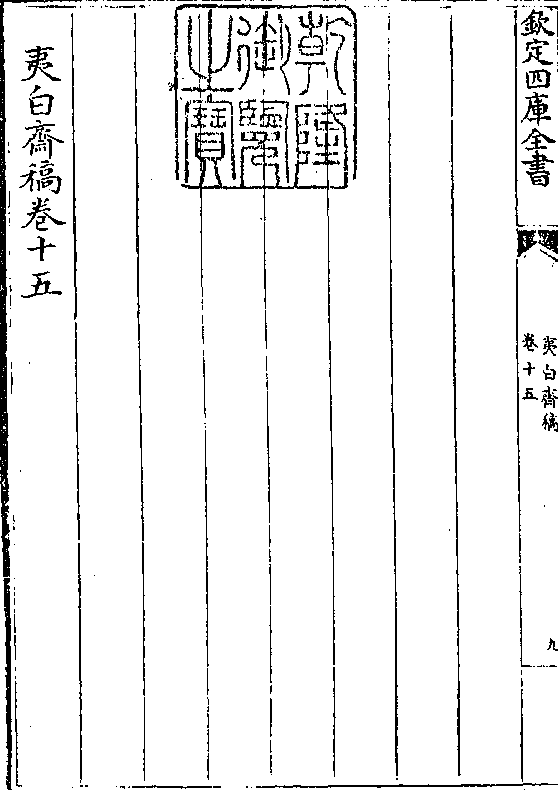 欽定四庫全書
夷白齋稿
卷十五
九
乾隆
御覽
之寶
夷白齋稿卷十五